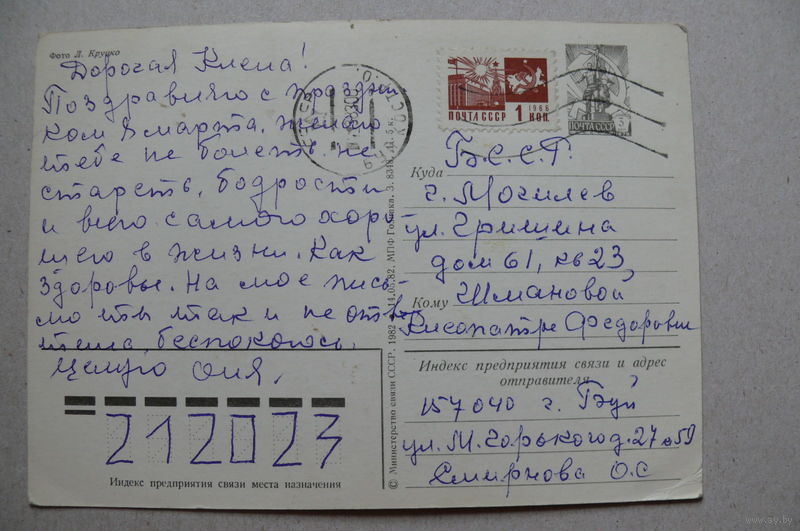 Фото Л. Круцко
Дорогая Клепа!
Поздравляю с праздни
ком 8 марта, желаю
тебе не болеть, не
стареть, бодрости
и всего самого хоро
шего в жизни. Как
здоровье. На мое пись
мо ты так и не отве
тила, беспокоюсь.
Целую Оля.
212023
Индекс предприятия связи места назначения
© Министерство связи СССР. 1982 14.05.82. МПФ Гознака. З. 8348. Ц. 5 к.
ПОЧТА СССР 1966 1 КОП.
ПОЧТА СССР
Б.С.С.Р.
Куда
г. Могилев
ул. Гришина
дом 61, кв 23,
Кому Шмановой
Клеопатре Федоровне
Индекс предприятия связи и адрес
отправителя
157040 г. Буй
ул. М. Горького д. 27 в 59
Смирнова О.С
www.ay.by